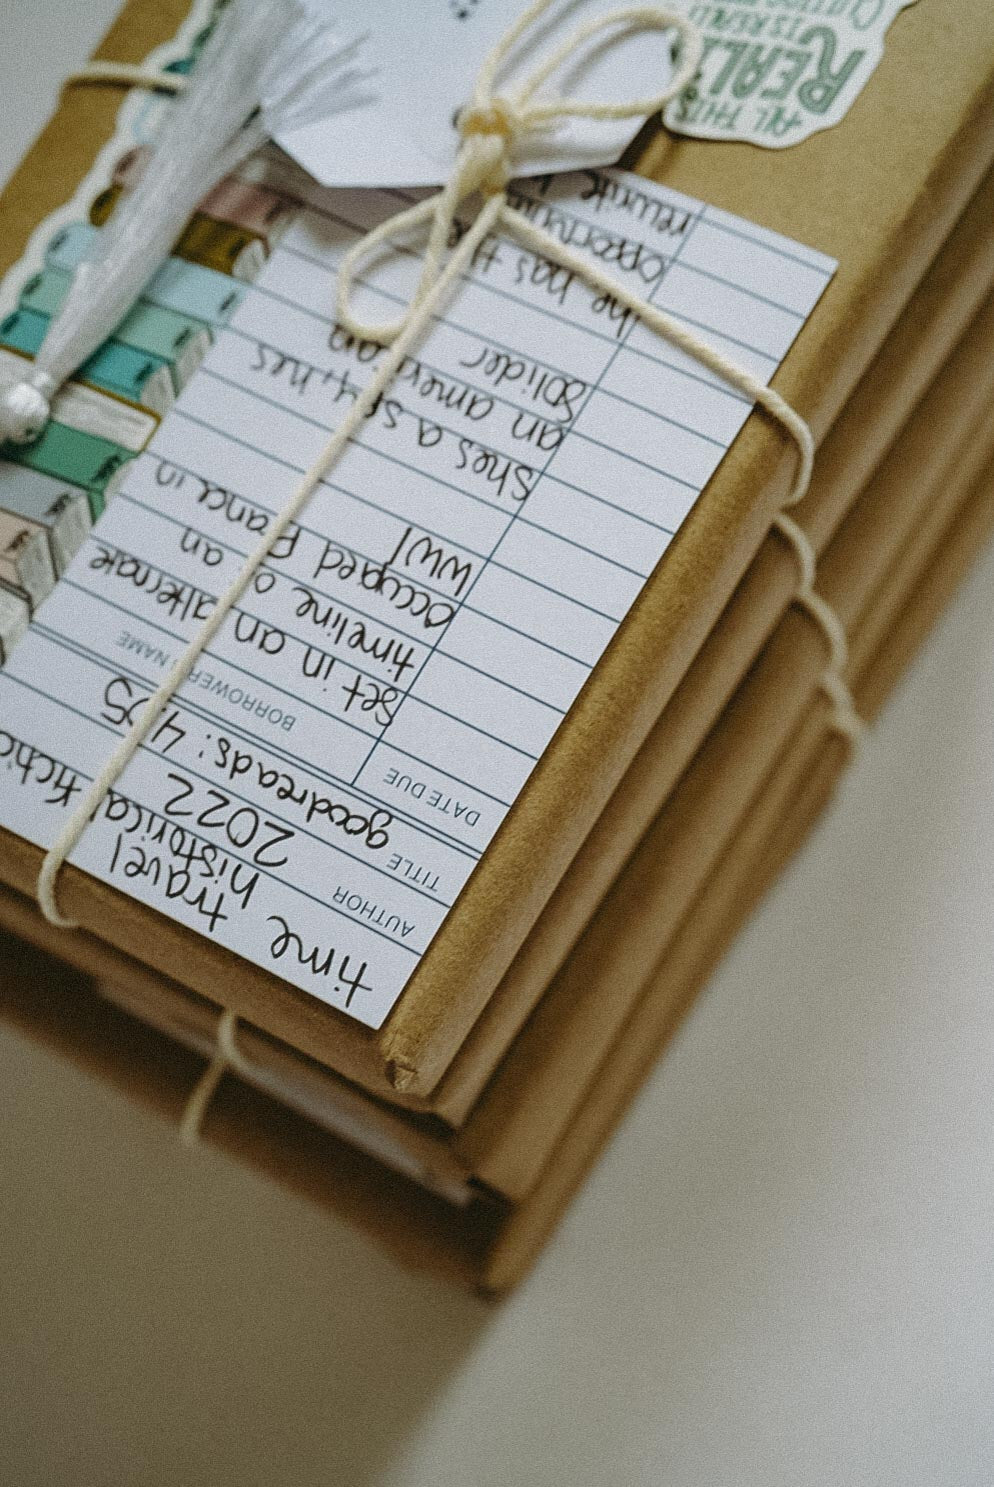 time travel
historical fictio
AUTHOR
2022
TITLE
goodreads: 4,05
DATE DUE
BORROWER'S NAME
set in an alternate
timeline of an
occupied France in
WWI
shes a spy, hes
an american
solider
he has the
opportuni
rewrite
ALL THIS
REALI
IS REALL
CUTTING